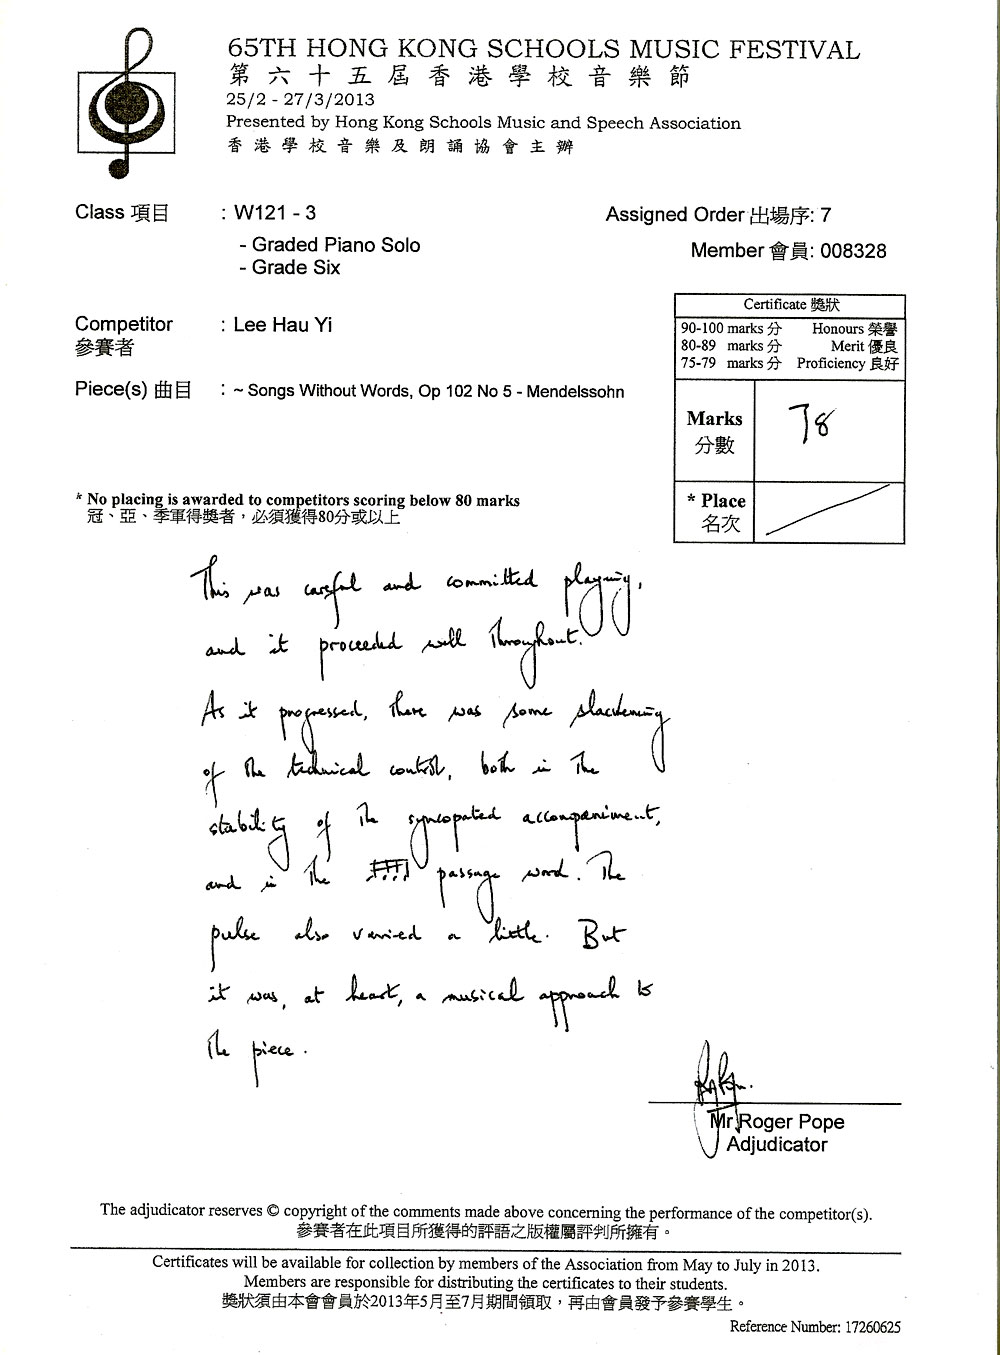 65TH HONG KONG SCHOOLS MUSIC FESTIVAL
第六十五屆香港學校音樂節
25/2 - 27/3/2013
Presented by Hong Kong Schools Music and Speech Association
香港學校音樂及朗誦協會主辦
Class 項目 : W121 - 3
Assigned Order 出場序: 7
- Graded Piano Solo
- Grade Six
Member 會員: 008328
Certificate 獎狀
90-100 marks 分 Honours 榮譽
80-89 marks 分 Merit 優良
75-79 marks 分 Proficiency 良好
Competitor : Lee Hau Yi
參賽者
Piece(s) 曲目 : ~ Songs Without Words, Op 102 No 5 - Mendelssohn
Marks 78
分數
* Place
名次
* No placing is awarded to competitors scoring below 80 marks
冠、亞、季軍得獎者，必須獲得80分或以上
This was careful and committed playing,
and it proceeded well throughout.
As it progressed, there was some slackening
of the technical control, both in the
stability of the syncopated accompaniment,
and in the passage word. The
pulse also varied a little. But
it was, at heart, a musical approach to
the piece.
Mr Roger Pope
Adjudicator
The adjudicator reserves © copyright of the comments made above concerning the performance of the competitor(s).
參賽者在此項目所獲得的評語之版權屬評判所擁有。
Certificates will be available for collection by members of the Association from May to July in 2013.
Members are responsible for distributing the certificates to their students.
獎狀須由本會會員於2013年5月至7月期間領取，再由會員發予參賽學生。
Reference Number: 17260625